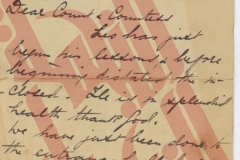 Dear Count & Countess
Leo has just
begun his lessons & before
beginning dictated the in
closed. He is in splendid
health thank God.
We have just been done to
the entrance